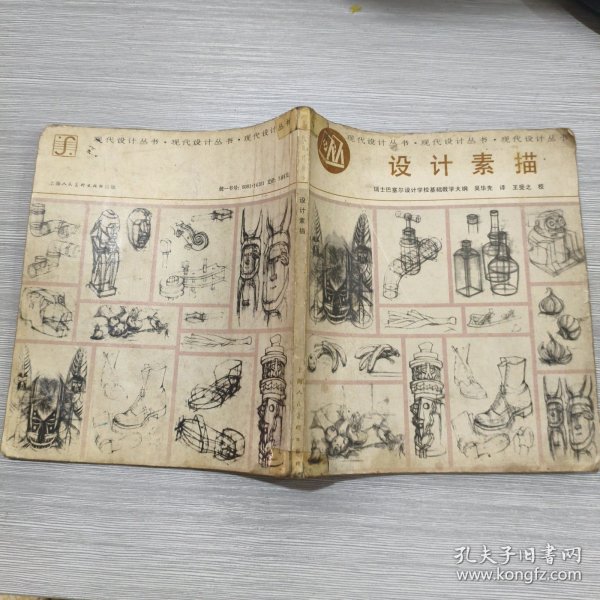 现代设计丛书·现代设计丛书·现代设计丛书
上海人民美术出版社出版
现代设计丛书·现代设计丛书·现代设计丛书
设计素描
瑞士巴塞尔设计学校基础教学大纲 吴华先 译 王受之 校
设计素描
孔夫子旧书网
www.kongfz.com